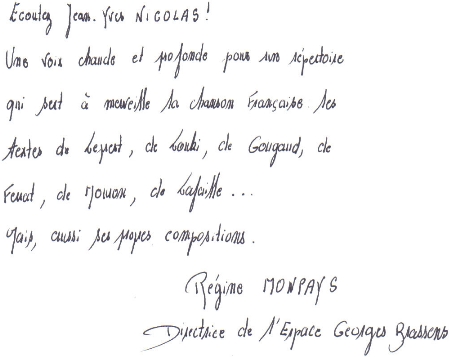 Ecoutez Jean-Yves NICOLAS !
Une voix chaude et profonde pour un répertoire
qui sert à merveille la chanson Française. Les
textes de Leprest, de Louki, de Gougaud, de
Ferrat, de Mouron, de Lafaille ...
Mais, aussi ses propres compositions.
Régine MONPAYS
Directrice de l'Espace Georges Brassens